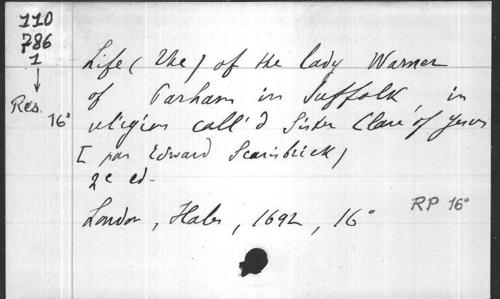 110
786
1
Res.
16°
Life (The) of the lady Warner
of Parham in Suffolk, in
religion call'd Sister Clare of Jesus
[par Edward Scarisbrick]
2e ed.
London, Hales, 1692, 16°
RP 16°